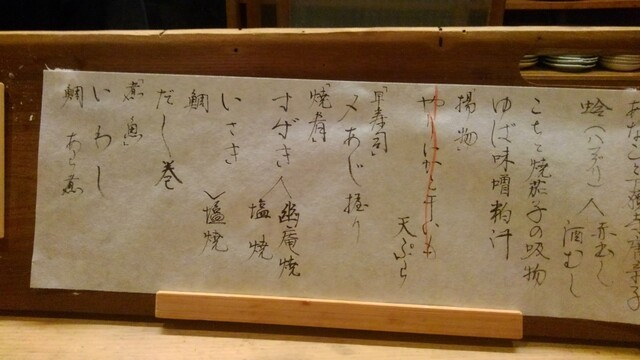 蛤(ハマグリ)
酒むし
こちと焼茄子の吸物
ゆば味噌粕汁
揚物
天ぷら
「早寿司」
〆あじ握り
「焼肴」
すずき
幽庵焼
塩焼
いさき
鯛
塩焼
だし巻
「煮魚」
いわし
鯛あら煮